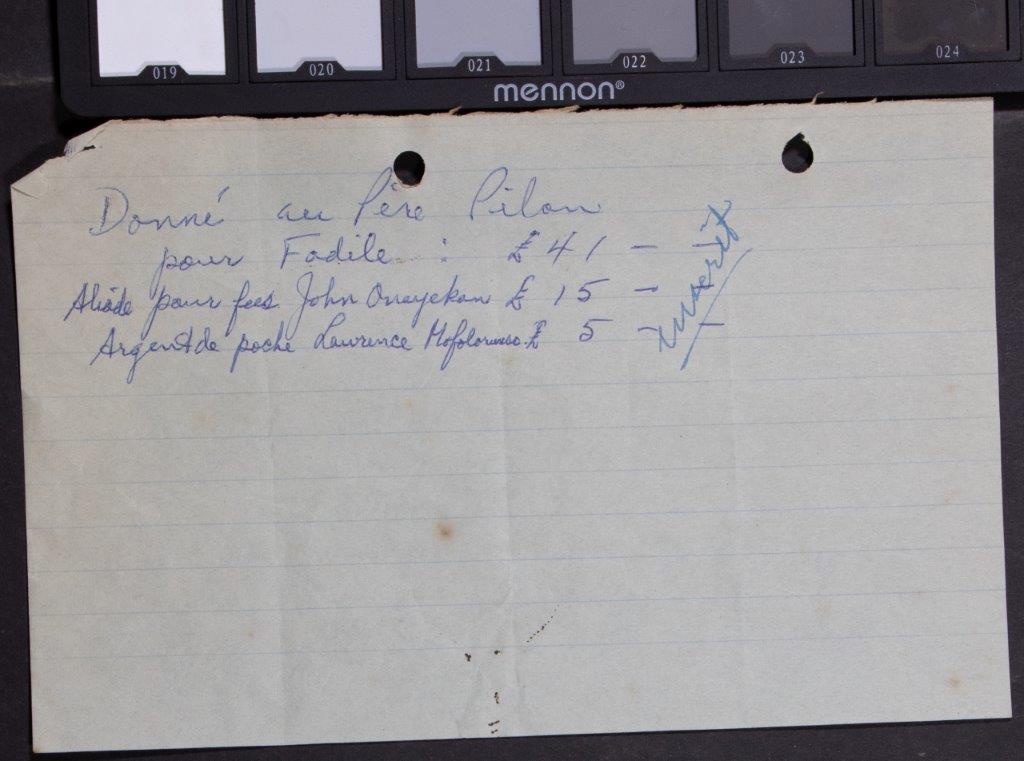 019 020 021 022 023 024
mennon®
Donné au Père Pilon
pour Fadile : £ 41 —
Aliade pour fees John Onayekan £ 15 —
Argent de poche Laurence Mofolorunso £ 5 — —
inscrit